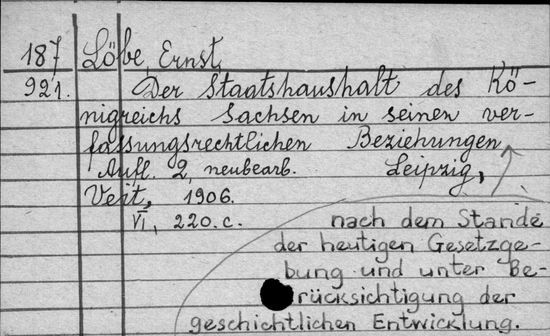 187 Löbe, Ernst.
921. Der Staatshaushalt des Kö-
nigreichs Sachsen in seinen ver-
fassungsrechtlichen Beziehungen
Aufl. 2, neubearb. Leipzig,
Veit, 1906.
VI, 220.c.
nach dem Stande
der heutigen Gesetzge-
bung und unter Be-
rücksichtigung der
geschichtlichen Entwicklung.